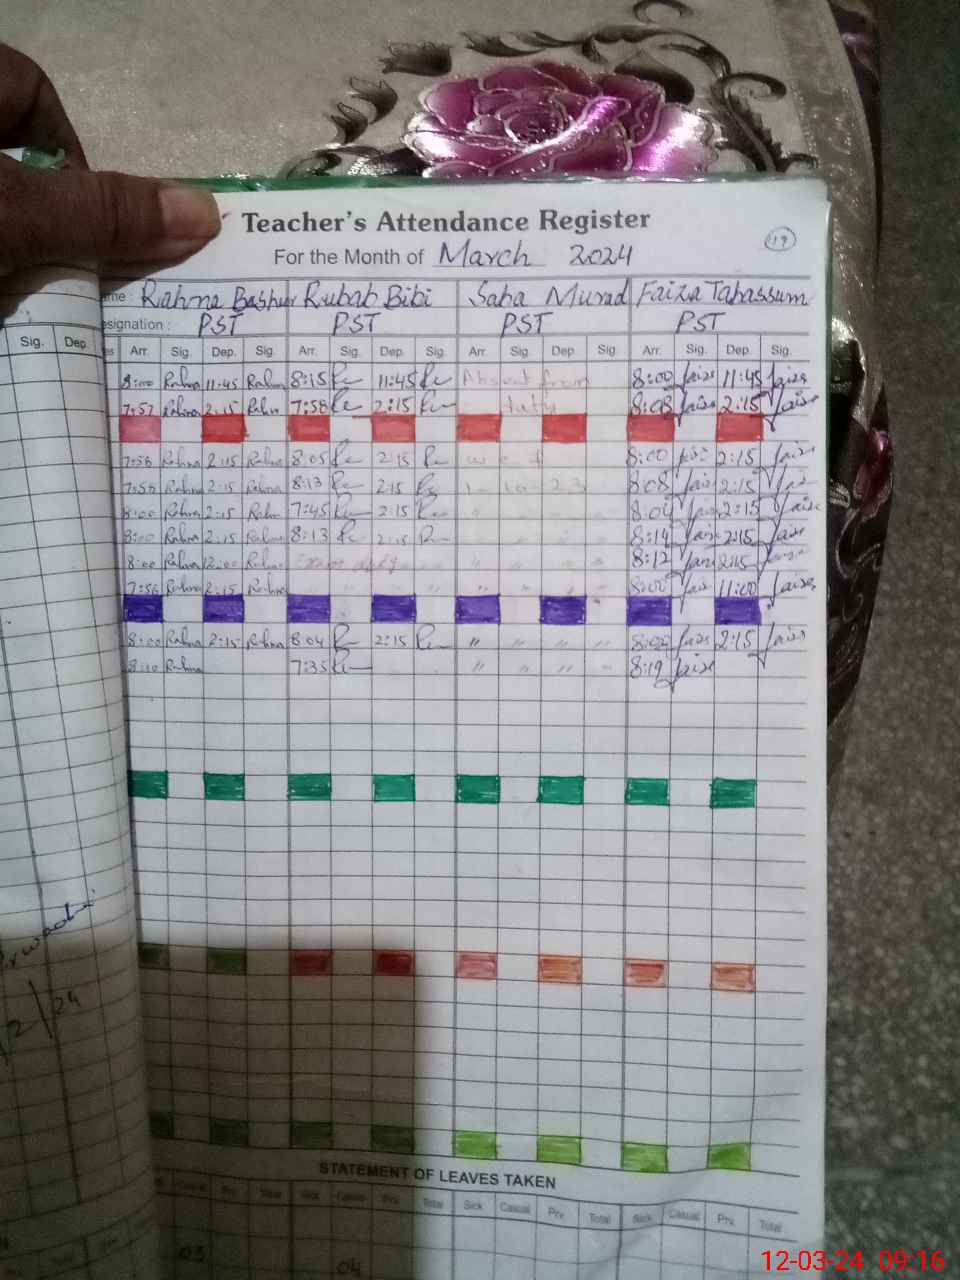 Teacher's Attendance Register
19
For the Month of March 2024
me : Rahna Bashir Rubab Bibi Saba Murad Faiza Tabassum
esignation : PST PST PST PST
Sig. Dep.
es Arr. Sig. Dep. Sig. Arr. Sig. Dep. Sig. Arr. Sig. Dep. Sig. Arr. Sig. Dep. Sig.
8:00 Rahna 11:45 Rahna 8:15 11:45 Absent from 8:00 faiza 11:45 faiza
7:57 Rahna 2:15 Rahna 7:58 2:15 8:08 faiza 2:15 faiza
7:56 Rahna 2:15 Rahna 8:05 2:15 w e f 8:00 faiza 2:15 faiza
7:56 Rahna 2:15 Rahna 8:13 2:15 1-10-23 8:08 faiza 2:15 faiza
8:00 Rahna 2:15 Rahna 7:45 2:15 " 8:04 faiza 2:15 faiza
8:00 Rahna 2:15 Rahna 8:13 2:15 8:14 faiza 2:15 faiza
8:00 Rahna 12:00 Rahna " " " " 8:12 faiza 2:15 faiza
7:56 Rahna 2:15 Rahna " " " 8:00 faiza 11:00 faiza
8:00 Rahna 2:15 Rahna 8:04 2:15 " " " " 8:02 faiza 2:15 faiza
8:10 Rahna 7:35 " " " " 8:19 faiza
2/24
STATEMENT OF LEAVES TAKEN
Prv. Total Sick Casual Prv. Total Sick Casual Prv. Total Sick Casual Prv. Total
03 04
12-03-24 09:16